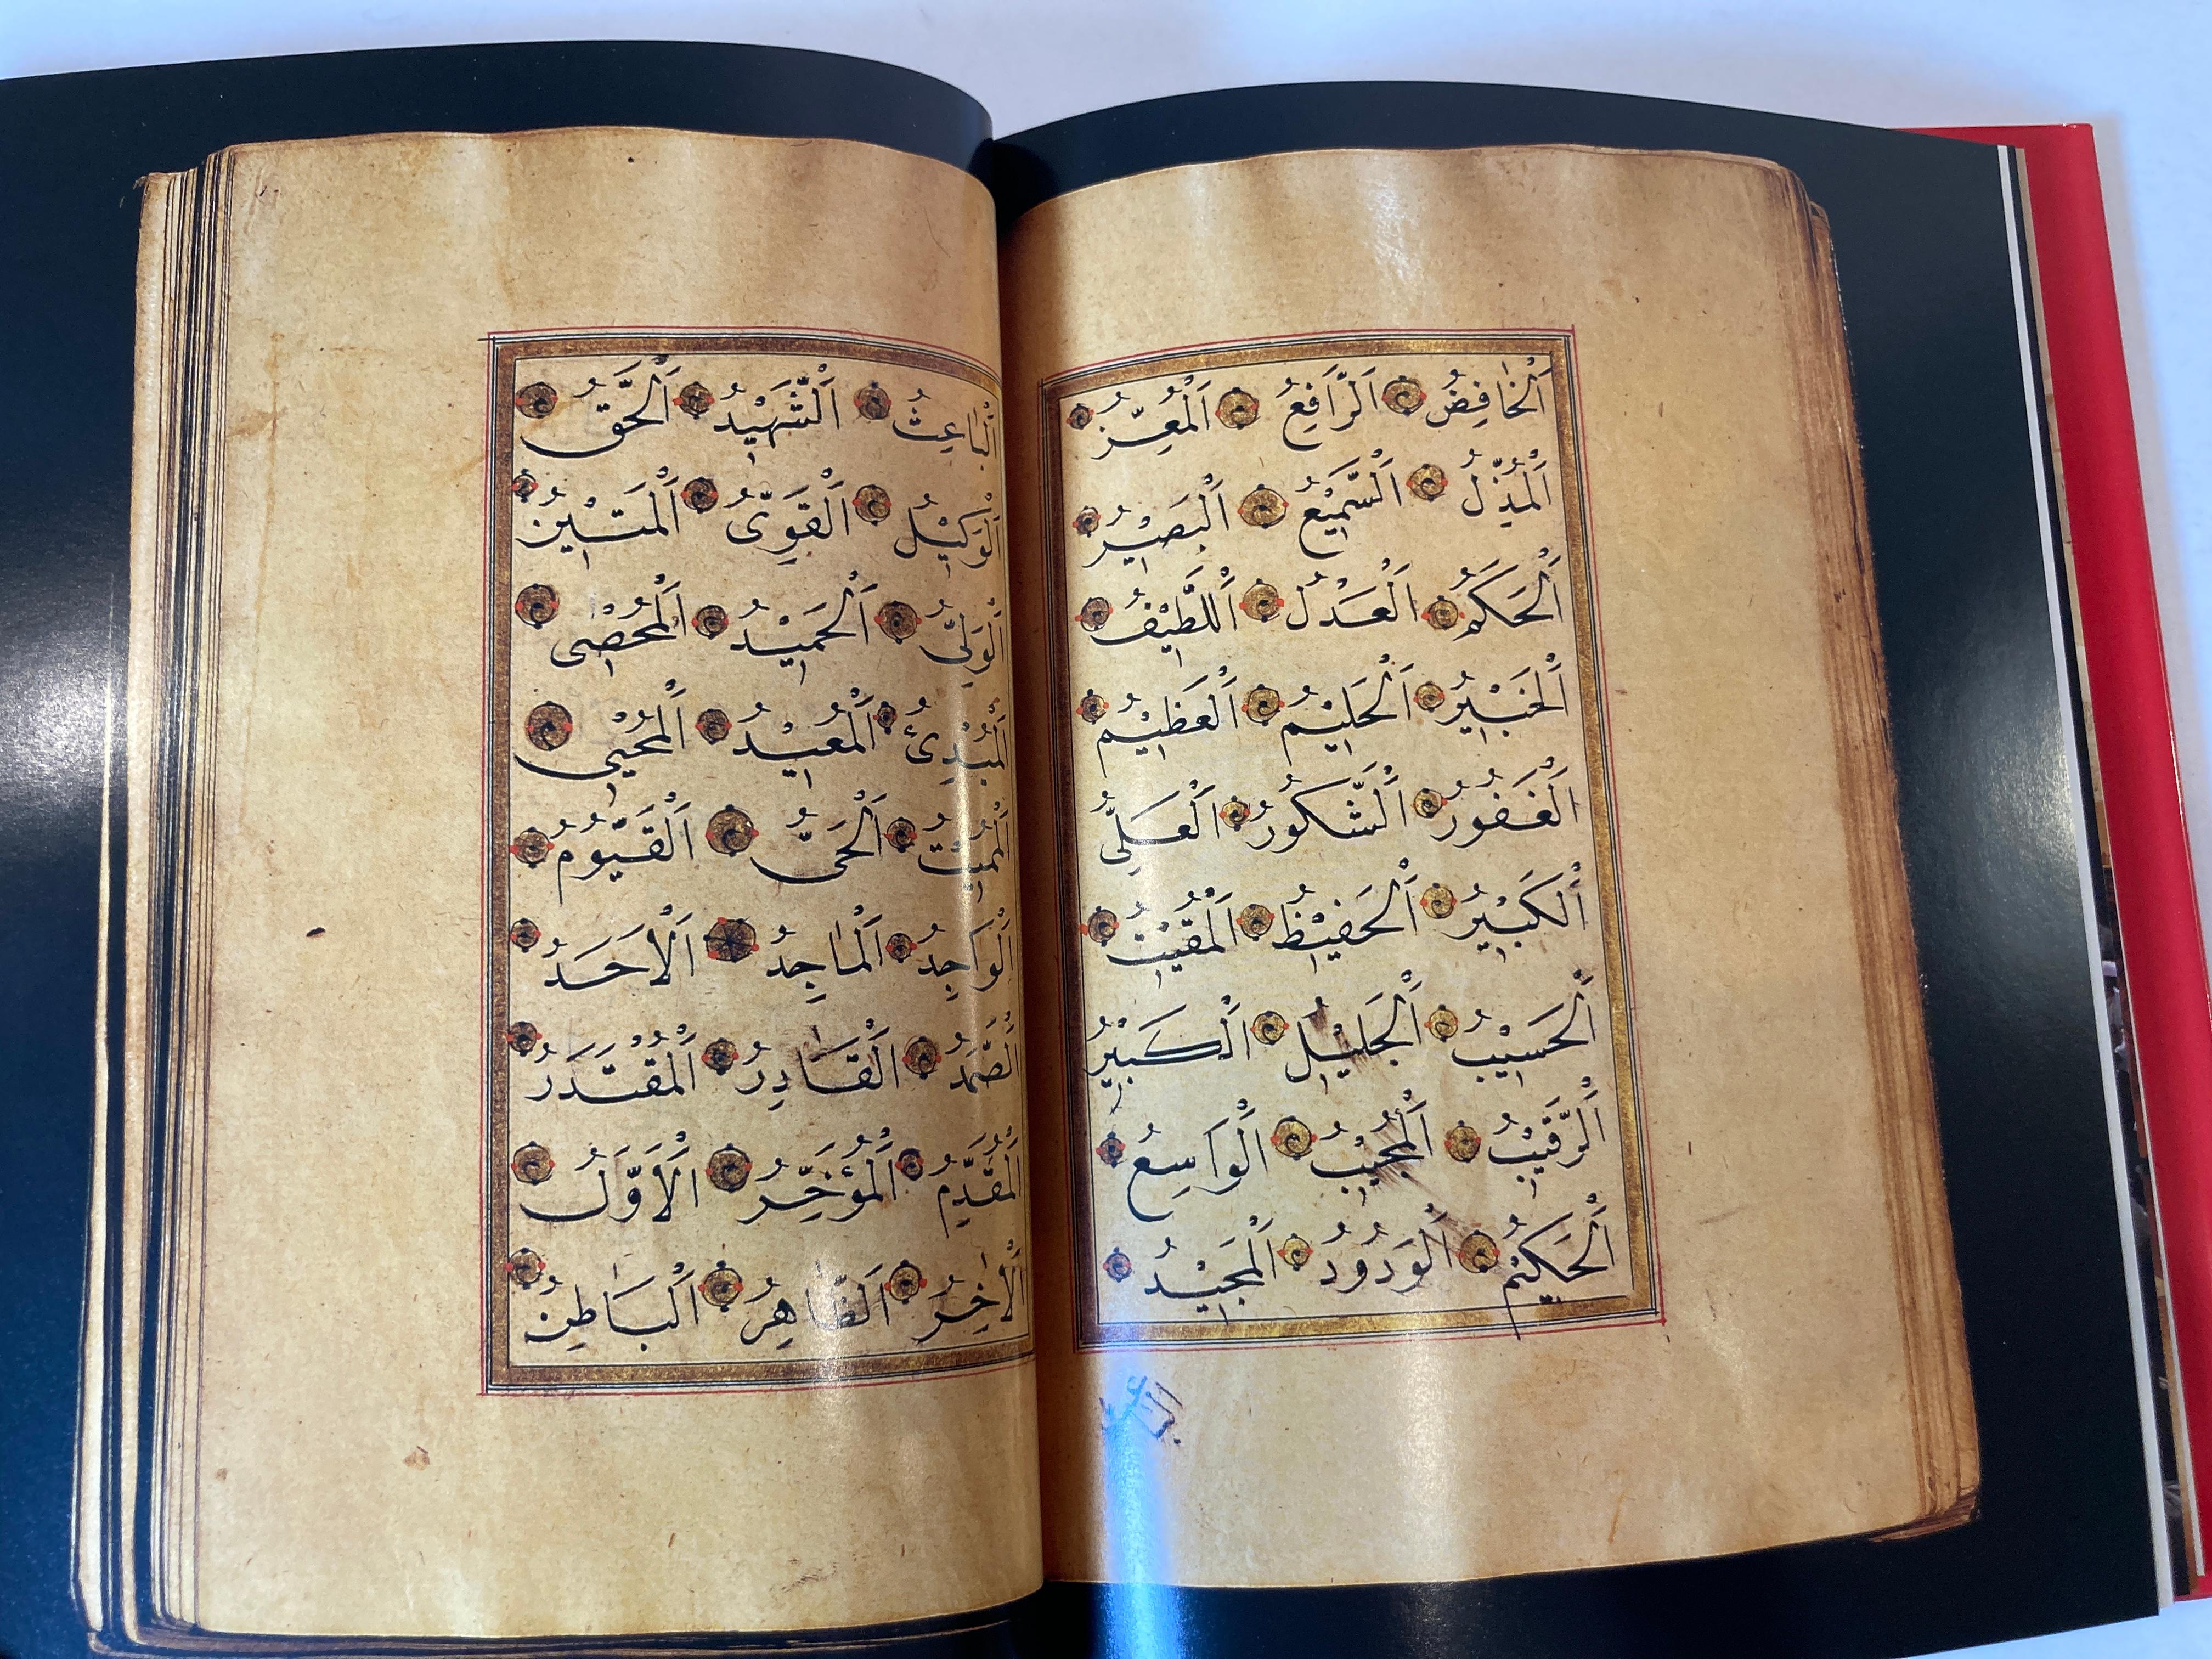 اَلْخَافِضُ اَلرَّافِعُ اَلْمُعِزُّ
اَلْمُذِلُّ اَلسَّمِيْعُ اَلْبَصِيْرُ
اَلْحَكَمُ اَلْعَدْلُ اَللَّطِيْفُ
اَلْخَبِيْرُ اَلْحَلِيْمُ اَلْعَظِيْمُ
اَلْغَفُورُ اَلشَّكُورُ اَلْعَلِيُّ
اَلْكَبِيْرُ اَلْحَفِيْظُ اَلْمُقِيْتُ
اَلْحَسِيْبُ اَلْجَلِيْلُ اَلْكَبِيْرُ
اَلرَّقِيْبُ اَلْمُجِيْبُ اَلْوَاسِعُ
اَلْحَكِيْمُ اَلْوَدُودُ اَلْمَجِيْدُ
اَلْبَاعِثُ اَلشَّهِيْدُ اَلْحَقُّ
اَلْوَكِيْلُ اَلْقَوِىُّ اَلْمَتِيْنُ
اَلْوَلِيُّ اَلْحَمِيْدُ اَلْمُحْصِى
اَلْمُبْدِئُ اَلْمُعِيْدُ اَلْمُحْيِى
اَلْمُمِيْتُ اَلْحَىُّ اَلْقَيُّومُ
اَلْوَاجِدُ اَلْمَاجِدُ اَلْاَحَدُ
اَلصَّمَدُ اَلْقَادِرُ اَلْمُقْتَدَرُ
اَلْمُقَدِّمُ اَلْمُؤَخِّرُ اَلْاَوَّلُ
اَلْاٰخِرُ اَلظَّاهِرُ اَلْبَاطِنُ